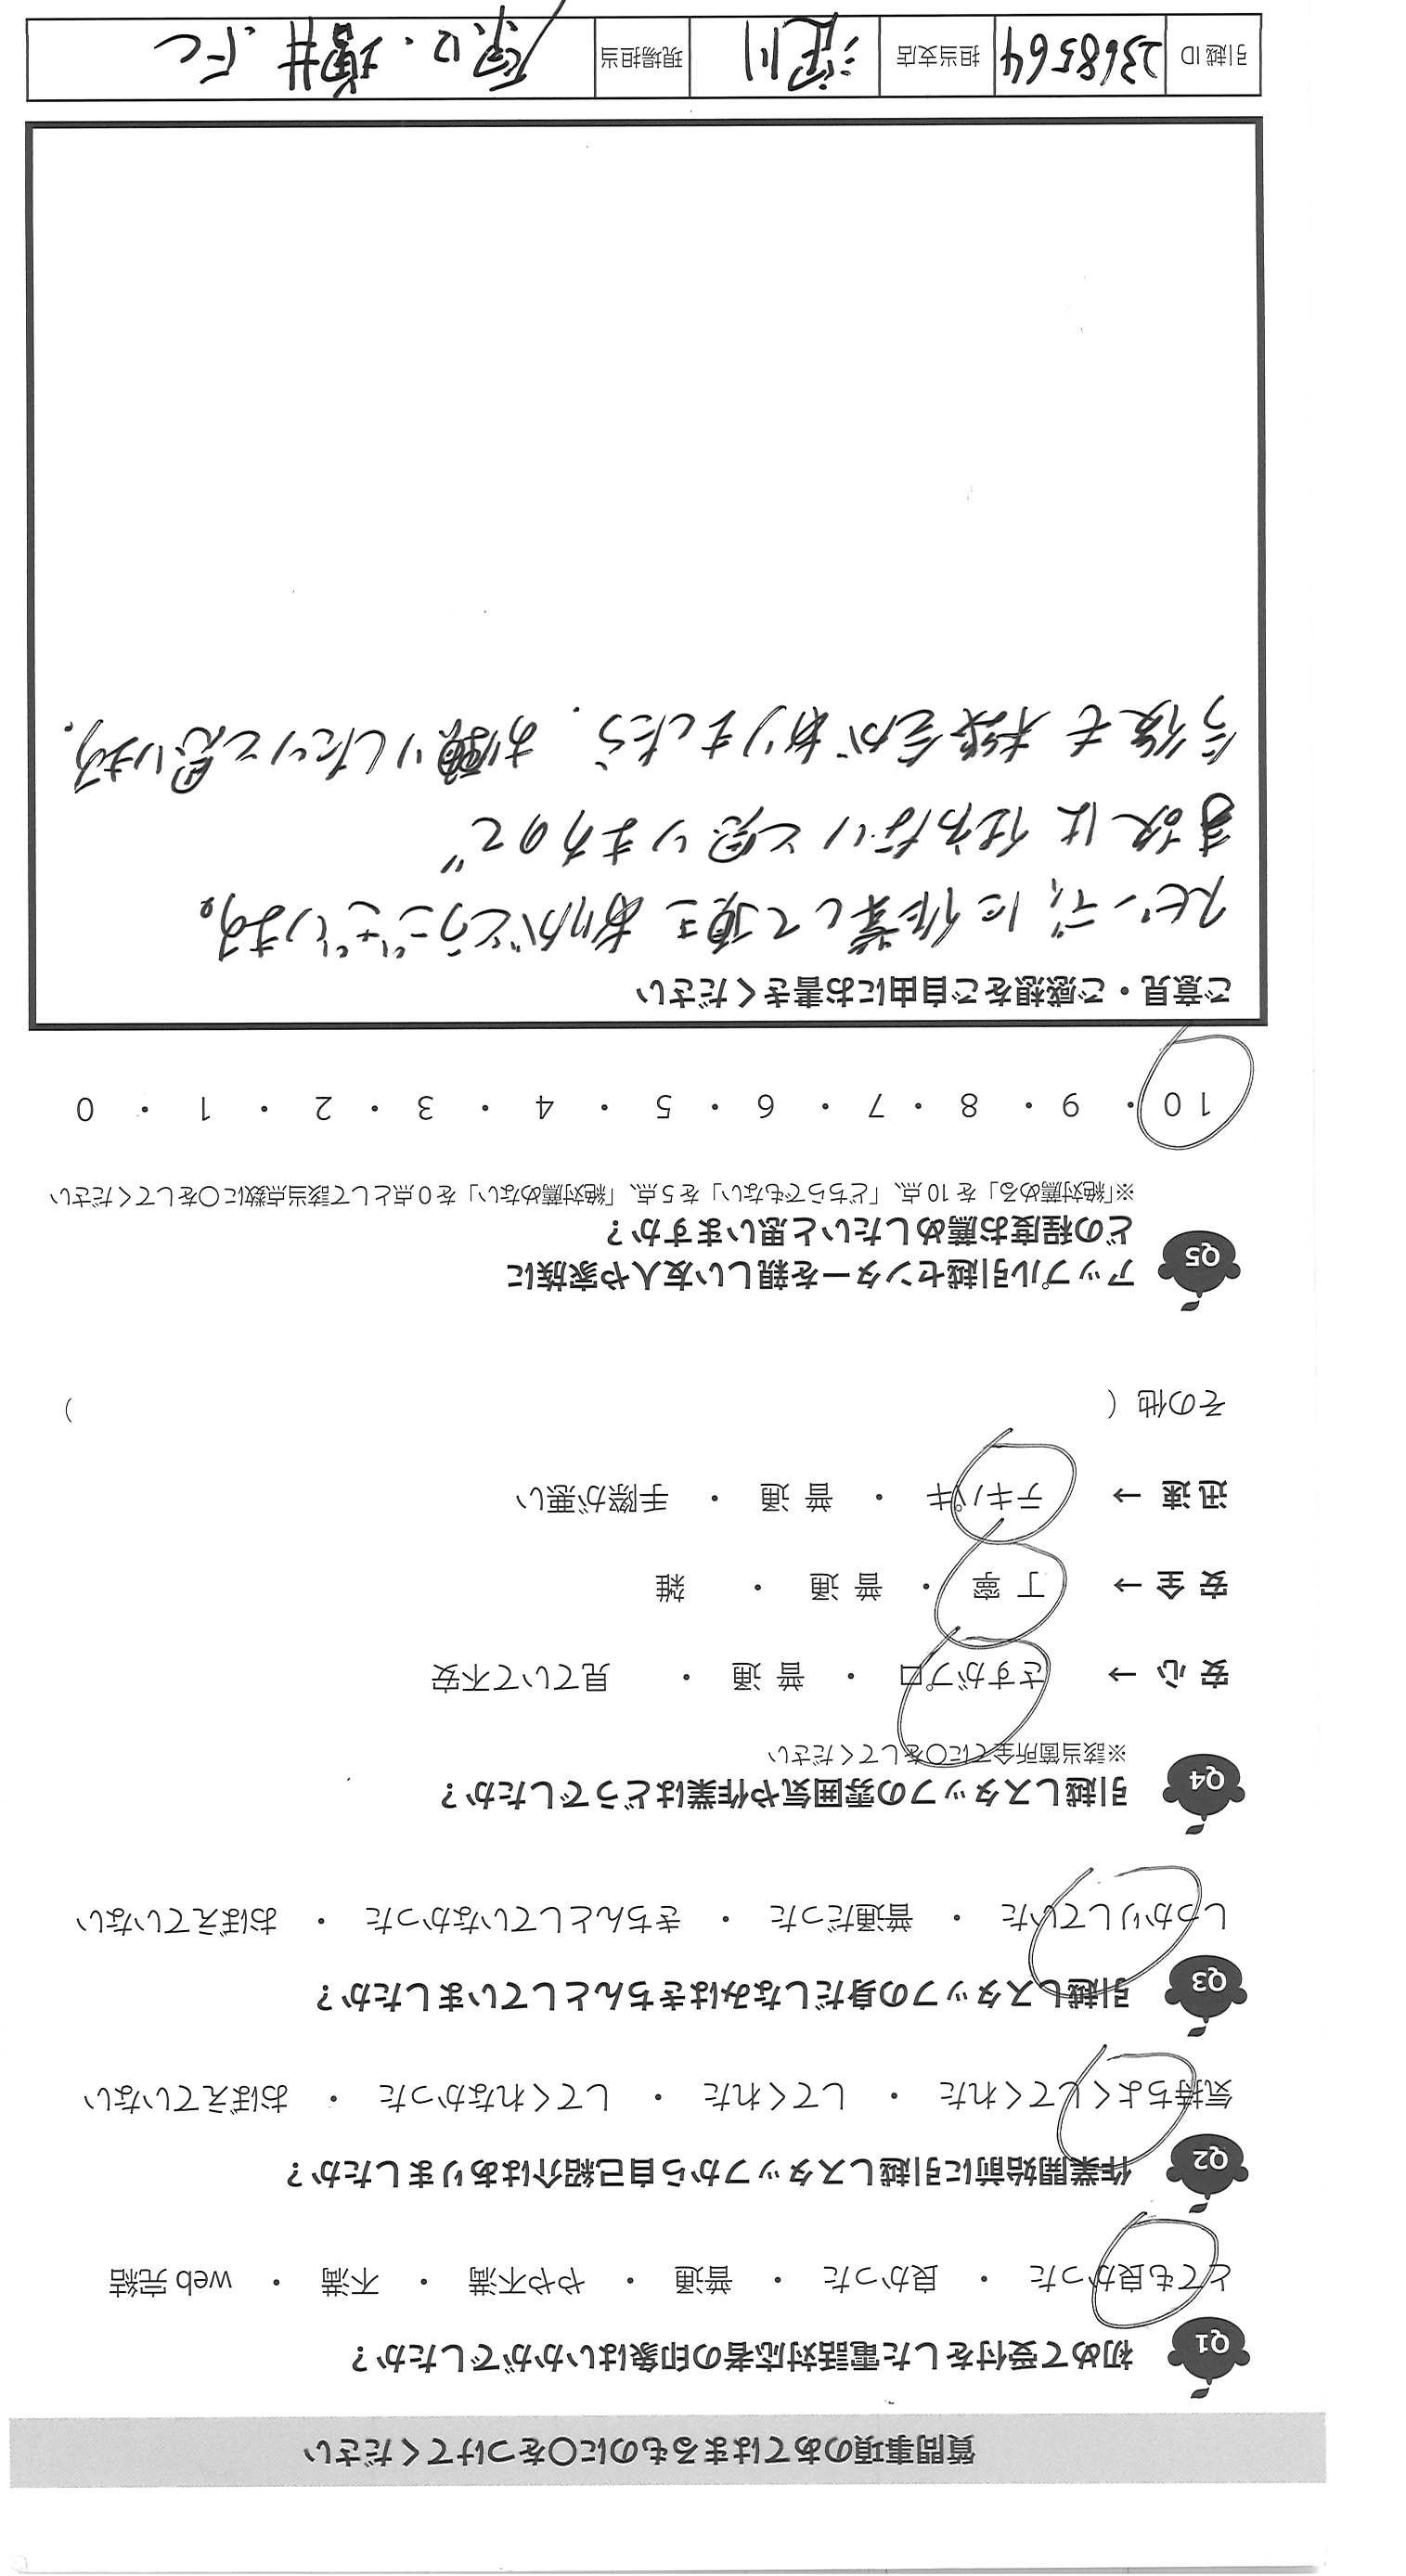 質問事項のあてはまるものに〇をつけてください
Q1 初めて受付をした電話対応者の印象はいかがでしたか？
とても良かった ・ 良かった ・ 普通 ・ やや不満 ・ 不満 ・ web完結
Q2 作業開始前に引越しスタッフから自己紹介はありましたか？
気持ちよくしてくれた ・ してくれた ・ してくれなかった ・ おぼえていない
Q3 引越しスタッフの身だしなみはきちんとしていましたか？
しっかりしていた ・ 普通だった ・ きちんとしていなかった ・ おぼえていない
Q4 引越しスタッフの雰囲気や作業はどうでしたか？
※該当箇所全てに〇をしてください
安心 → さすがプロ ・ 普通 ・ 見ていて不安
安全 → 丁寧 ・ 普通 ・ 雑
迅速 → テキパキ ・ 普通 ・ 手際が悪い
その他（ ）
Q5 アップル引越センターを親しい友人や家族に
どの程度お薦めしたいと思いますか？
※「絶対薦める」を10点、「どちらでもない」を5点、「絶対薦めない」を0点として該当点数に〇をしてください
10 ・ 9 ・ 8 ・ 7 ・ 6 ・ 5 ・ 4 ・ 3 ・ 2 ・ 1 ・ 0
ご意見・ご感想をご自由にお書きください
スピーディに作業して頂き ありがとうございます。
は 思いますので
今後も機会がありましたら、お願いしたいと思います。
引越ID 2368564 担当支店 現場担当 原口・櫻井